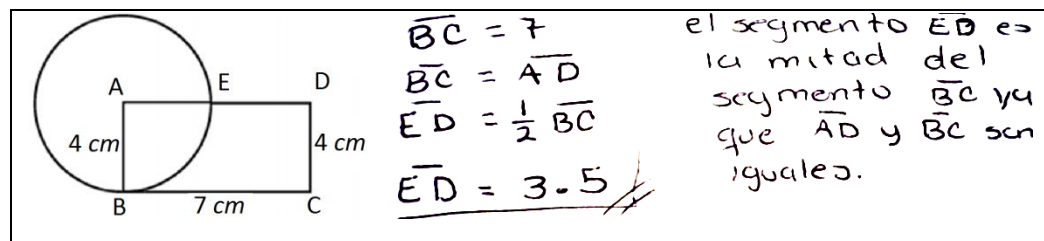 A
E
D
4 cm
4 cm
B
7 cm
C
BC = 7
BC = AD
ED = 1/2 BC
ED = 3.5
el segmento ED es
la mitad del
segmento BC ya
que AD y BC son
iguales.